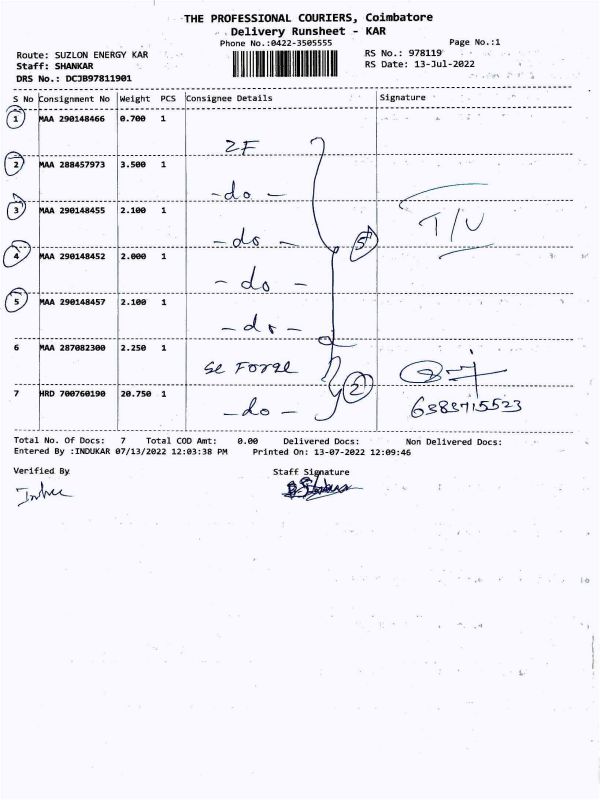 THE PROFESSIONAL COURIERS, Coimbatore
Delivery Runsheet - KAR
Phone No.:0422-3505555 Page No.:1
Route: SUZLON ENERGY KAR RS No.: 978119
Staff: SHANKAR RS Date: 13-Jul-2022
DRS No.: DCJB97811901
S No Consignment No Weight PCS Consignee Details Signature
1 MAA 290148466 0.700 1
ZF
2 MAA 288457973 3.500 1
- do -
3 MAA 290148455 2.100 1
- do - 5 T/U
4 MAA 290148452 2.000 1
- do -
5 MAA 290148457 2.100 1
- do -
6 MAA 287082300 2.250 1
Se Forge
7 HRD 700760190 20.750 1 2 6383715523
- do -
Total No. Of Docs: 7 Total COD Amt: 0.00 Delivered Docs: Non Delivered Docs:
Entered By :INDUKAR 07/13/2022 12:03:38 PM Printed On: 13-07-2022 12:09:46
Verified By Staff Signature